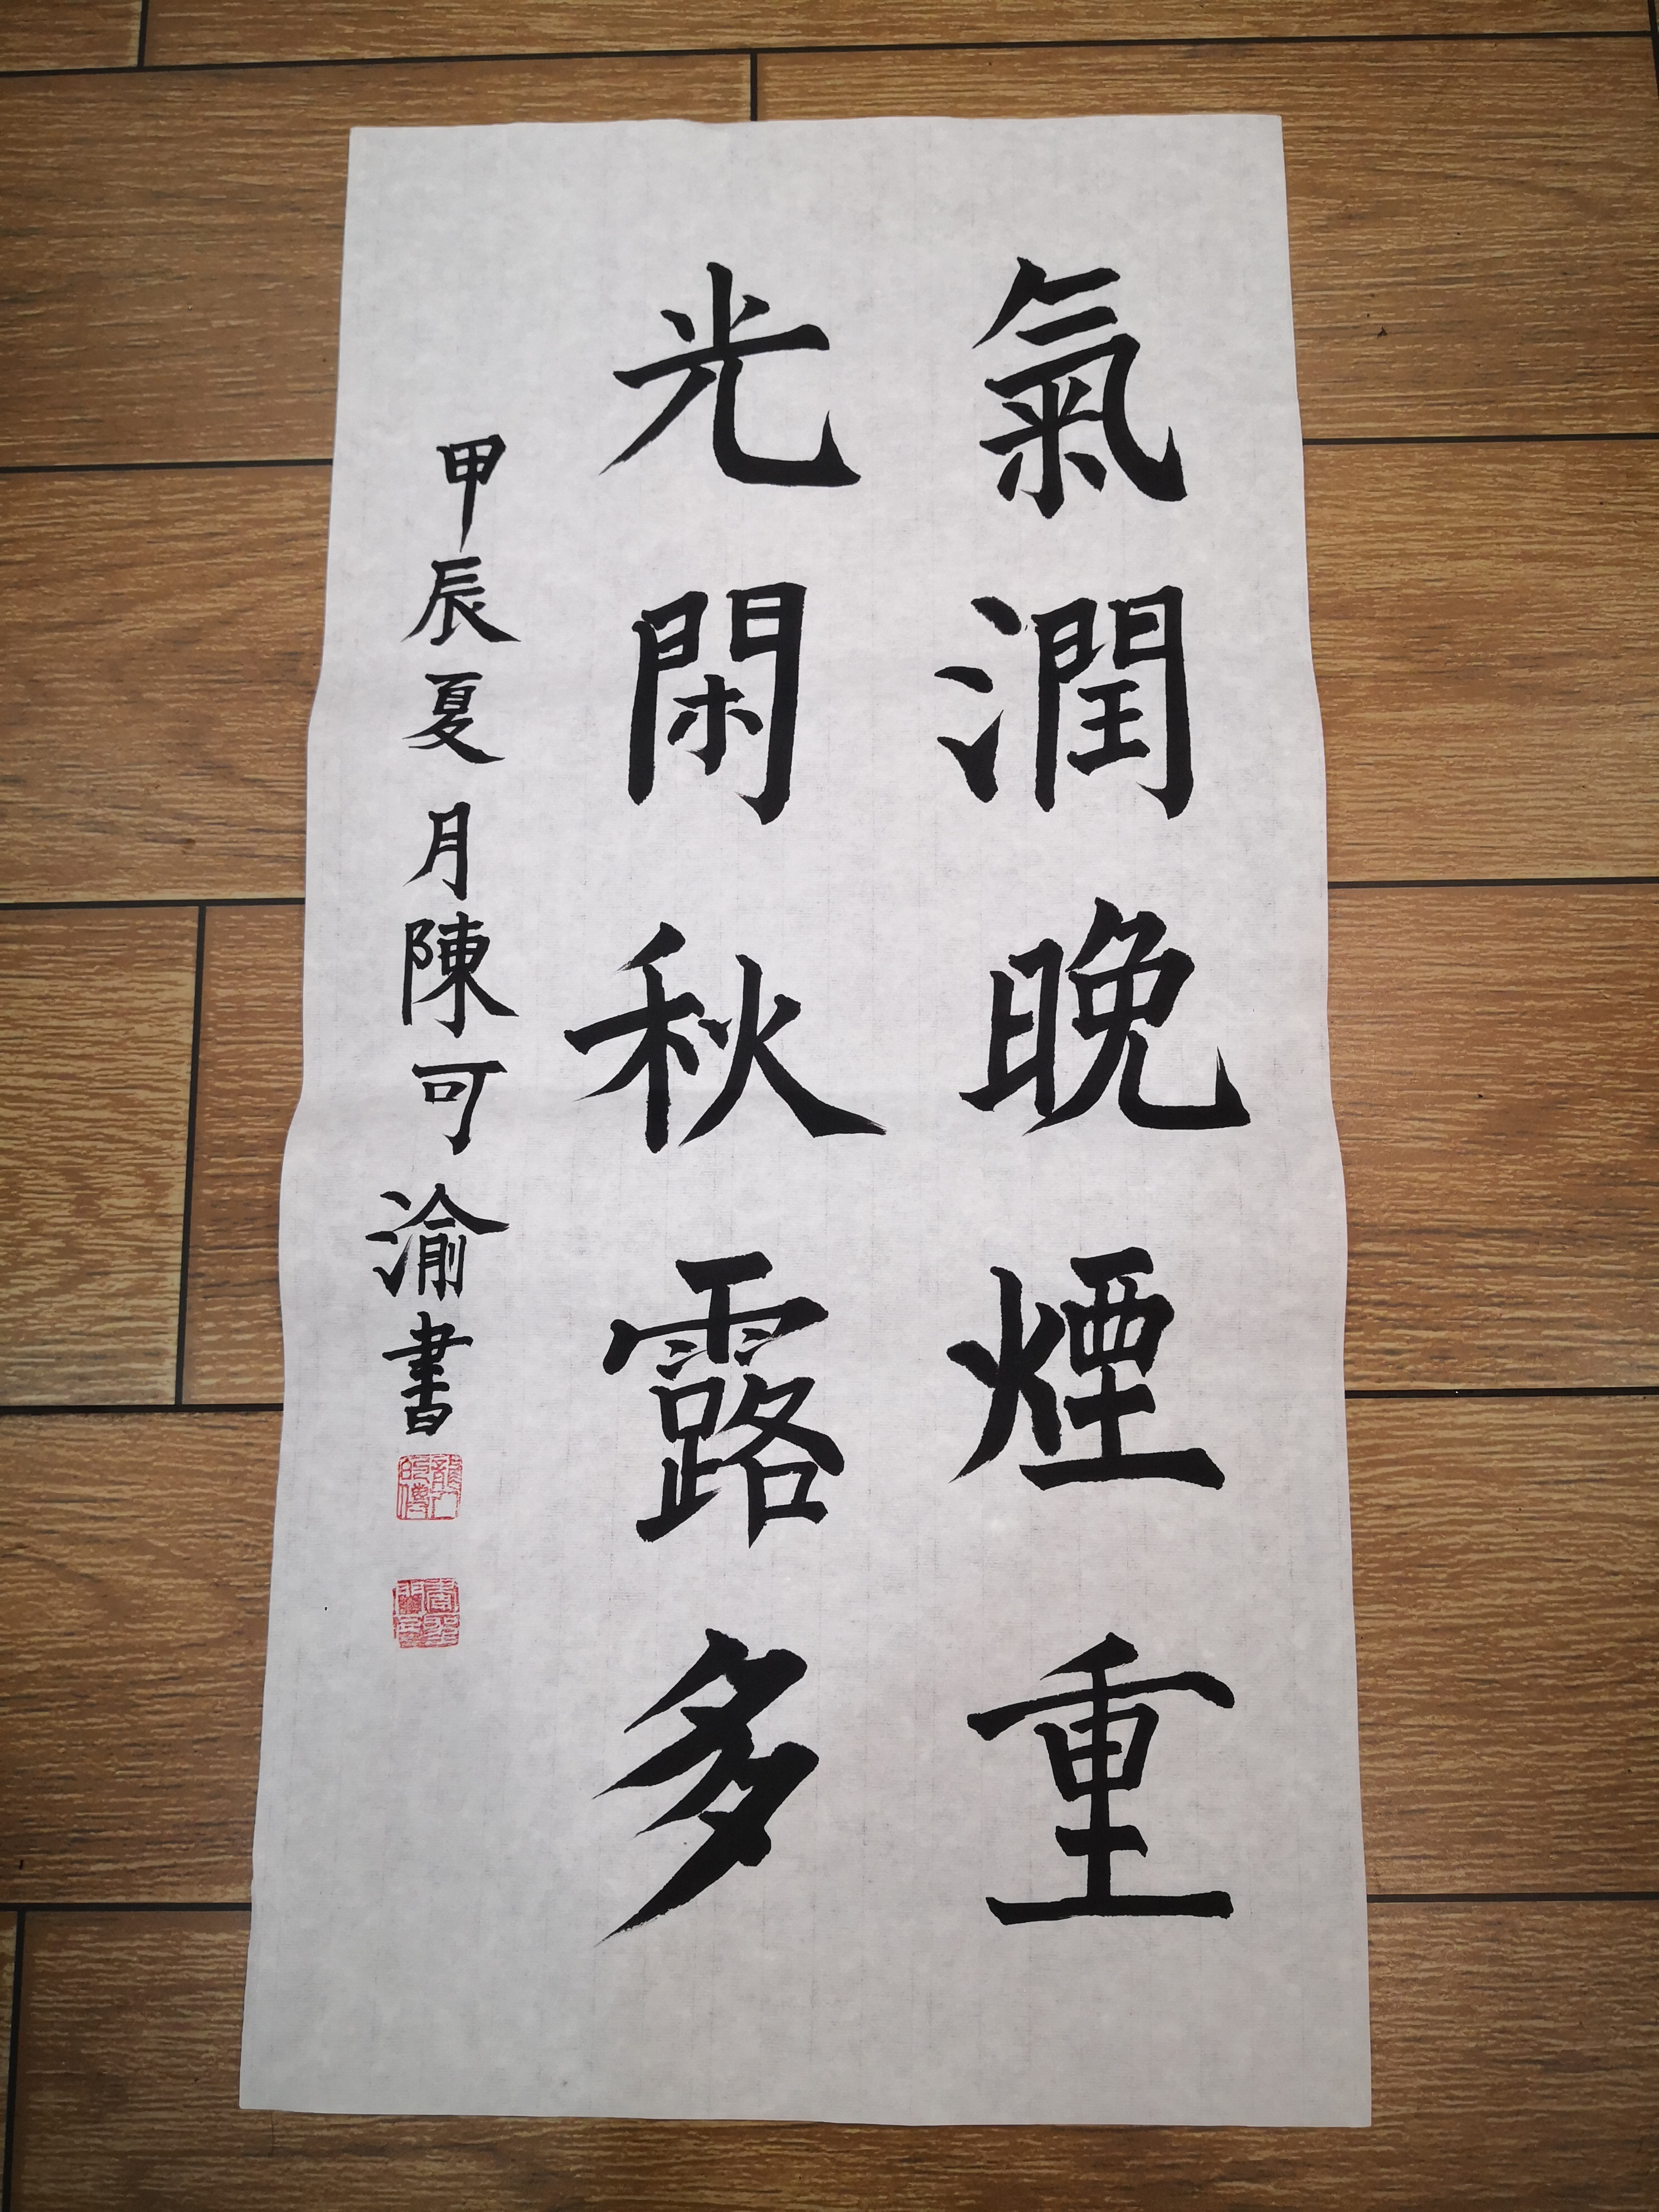 氣潤晚煙重
光閑秋露多
甲辰夏月陳可渝書